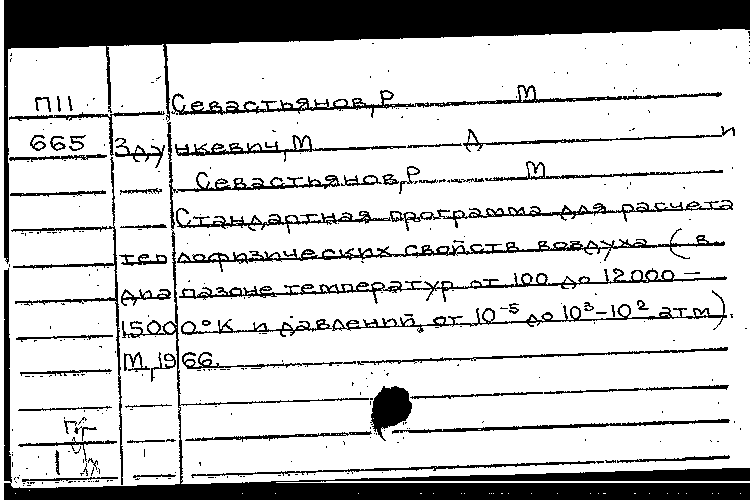 П11 Севастьянов, Р М
665 Здункевич, М Д и
Севастьянов, Р М
Стандартная программа для расчета
теплофизических свойств воздуха (в
диапазоне температур от 100 до 12000 —
15000°К и давлений, от 10⁻⁵ до 10³-10² атм).
М., 1966.
1